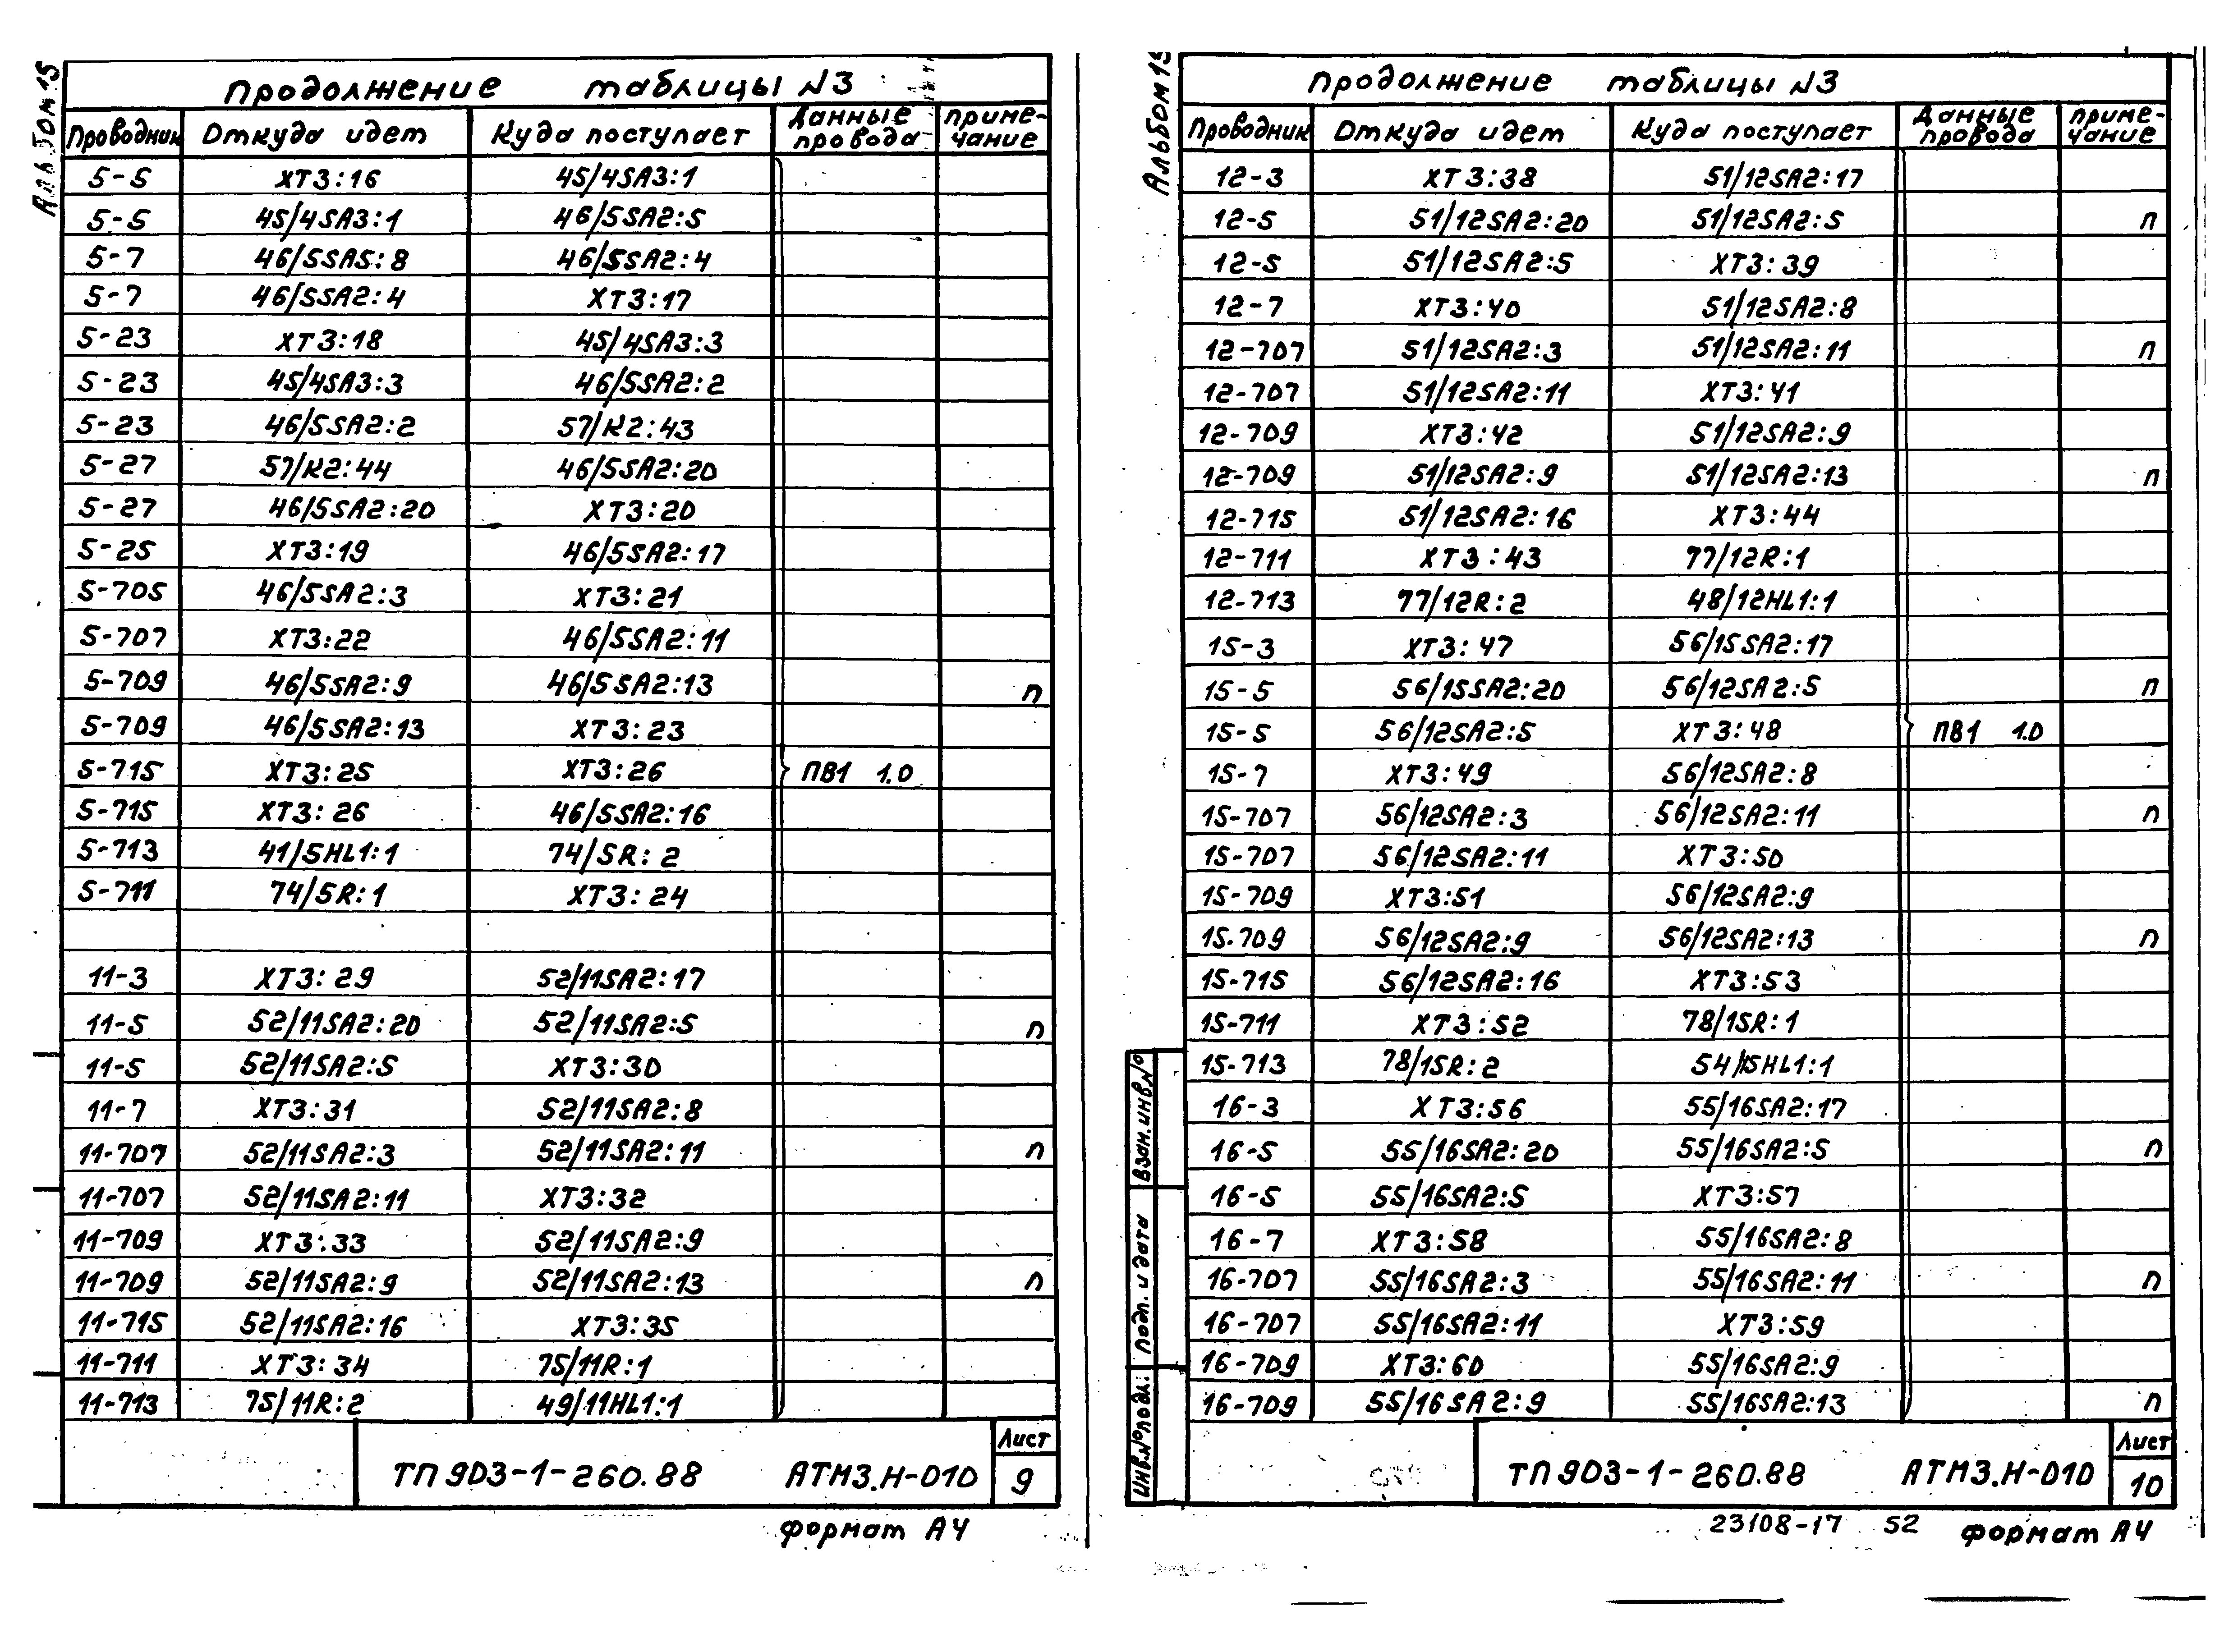 Альбом 15
продолжение таблицы N3
Проводник Откуда идет Куда поступает Данные провода приме-чание
5-5 XT3:16 45/4SA3:1
5-5 45/4SA3:1 46/5SA2:5
5-7 46/5SA5:8 46/5SA2:4
5-7 46/5SA2:4 XT3:17
5-23 XT3:18 45/4SA3:3
5-23 45/4SA3:3 46/5SA2:2
5-23 46/5SA2:2 57/K2:43
5-27 57/K2:44 46/5SA2:20
5-27 46/5SA2:20 XT3:20
5-25 XT3:19 46/5SA2:17
5-705 46/5SA2:3 XT3:21
5-707 XT3:22 46/5SA2:11
5-709 46/5SA2:9 46/5SA2:13 п
5-709 46/5SA2:13 XT3:23
5-715 XT3:25 XT3:26 ПВ1 1.0
5-715 XT3:26 46/5SA2:16
5-713 41/5HL1:1 74/5R:2
5-711 74/5R:1 XT3:24
11-3 XT3:29 52/11SA2:17
11-5 52/11SA2:20 52/11SA2:5 п
11-5 52/11SA2:5 XT3:30
11-7 XT3:31 52/11SA2:8
11-707 52/11SA2:3 52/11SA2:11 п
11-707 52/11SA2:11 XT3:32
11-709 XT3:33 52/11SA2:9
11-709 52/11SA2:9 52/11SA2:13 п
11-715 52/11SA2:16 XT3:35
11-711 XT3:34 75/11R:1
11-713 75/11R:2 49/11HL1:1
ТП 903-1-260.88 АТМ3.Н-010 Лист 9
формат А4
Альбом 15
продолжение таблицы N3
Проводник Откуда идет Куда поступает Данные провода приме-чание
12-3 XT3:38 51/12SA2:17
12-5 51/12SA2:20 51/12SA2:5 п
12-5 51/12SA2:5 XT3:39
12-7 XT3:40 51/12SA2:8
12-707 51/12SA2:3 51/12SA2:11 п
12-707 51/12SA2:11 XT3:41
12-709 XT3:42 51/12SA2:9
12-709 51/12SA2:9 51/12SA2:13 п
12-715 51/12SA2:16 XT3:44
12-711 XT3:43 77/12R:1
12-713 77/12R:2 48/12HL1:1
15-3 XT3:47 56/15SA2:17
15-5 56/15SA2:20 56/12SA2:5 п
15-5 56/12SA2:5 XT3:48 ПВ1 1.0
15-7 XT3:49 56/12SA2:8
15-707 56/12SA2:3 56/12SA2:11 п
15-707 56/12SA2:11 XT3:50
15-709 XT3:51 56/12SA2:9
15-709 56/12SA2:9 56/12SA2:13 п
15-715 56/12SA2:16 XT3:53
15-711 XT3:52 78/15R:1
15-713 78/15R:2 54/15HL1:1
16-3 XT3:56 55/16SA2:17
16-5 55/16SA2:20 55/16SA2:5 п
16-5 55/16SA2:5 XT3:57
16-7 XT3:58 55/16SA2:8
16-707 55/16SA2:3 55/16SA2:11 п
16-707 55/16SA2:11 XT3:59
16-709 XT3:60 55/16SA2:9
16-709 55/16SA2:9 55/16SA2:13 п
Взам.инв.№
Подп. и дата
Инв.№подл.
ТП 903-1-260.88 АТМ3.Н-010 Лист 10
23108-17 52 формат А4